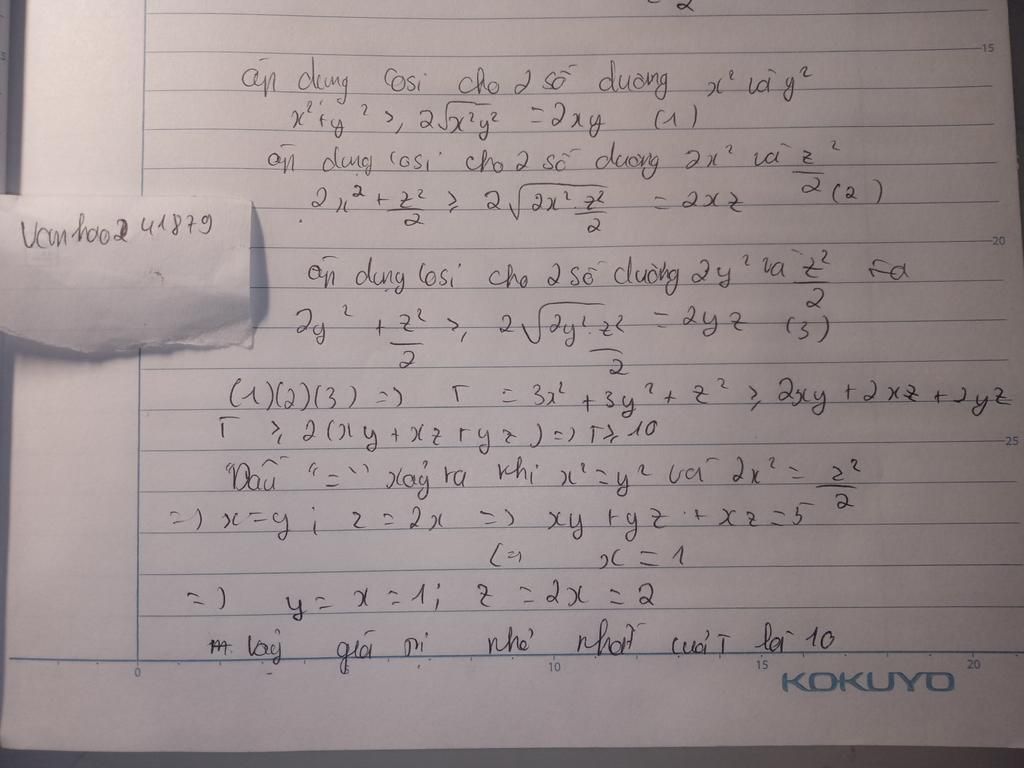 2
áp dụng Cosi cho 2 số dương x² và y²
x² + y² ≥ 2√x²y² = 2xy (1)
áp dụng Cosi cho 2 số dương 2x² và z²/2
2x² + z²/2 ≥ 2√2x².z²/2 = 2xz (2)
Vanhao241879
áp dụng Cosi cho 2 số dương 2y² và z²/2
2y² + z²/2 ≥ 2√2y².z²/2 = 2yz (3)
(1)(2)(3) => T = 3x² + 3y² + z² ≥ 2xy + 2xz + 2yz
T ≥ 2(xy + xz + yz) => T ≥ 10
Dấu "=" xảy ra khi x² = y² và 2x² = z²/2
=> x = y ; z = 2x => xy + yz + xz = 5
<=> x = 1
=> y = x = 1; z = 2x = 2
Vậy giá trị nhỏ nhất của T là 10
15
20
25
0
10
15
20
KOKUYO